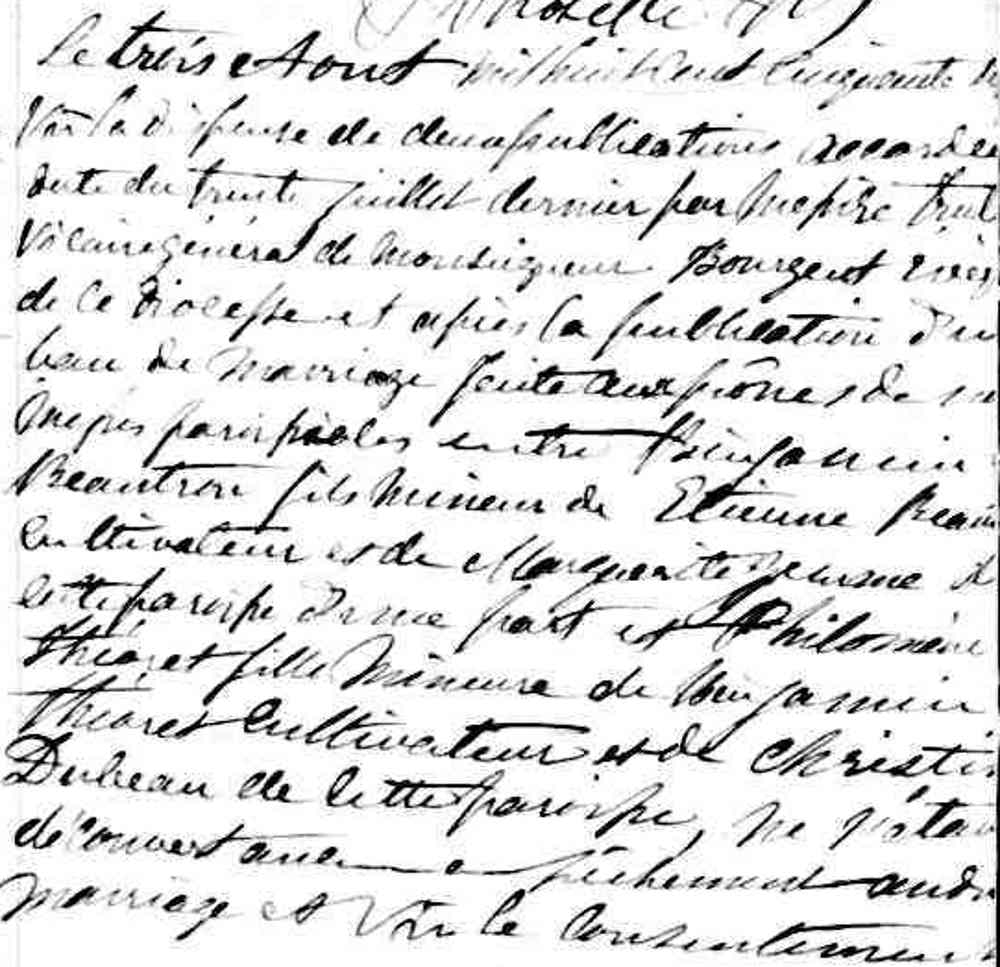 Le trois Aout mil huit cent cinquante
Vu la dispense de deux publications accordée
date du trente juillet dernier par Messire
Vicaire général de Monseigneur Bourget
de ce Diocesse et après la publication d'un
ban de marriage faite aux prônes de
Messes paroissiales entre Benjamin
Beautron fils mineur de Etienne
Cultivateur et de Marguerite
cette paroisse d'une part et Philomène
Théoret fille Mineure de Benjamin
Théoret Cultivateur et de Christin
Dubeau de cette paroisse, ne s'étan
découvert aucun empêchement
marriage et Vu le Consentemen